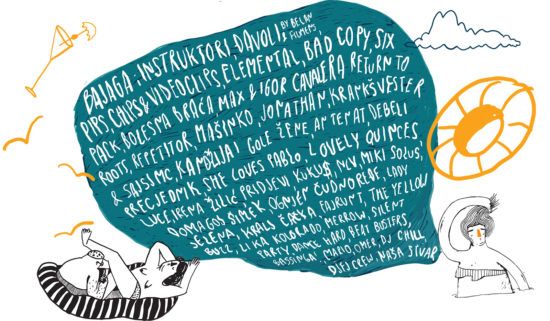 BAJAGA & INSTRUKTORI, ĐAVOLI BY BELAN & FILMERS
PIPS, CHIPS & VIDEOCLIPS, ELEMENTAL, BAD COPY, SIX
PACK, DOLESMA BRAĆA MAX & IGOR CAVALERA RETURN TO
ROOT, REPETITOR, MAŠINKO, JONATHAN, KRANKŠVESTER
& SAJSI MC, KANDŽIJA I GOLE ŽENE, ARTEMAT, DEBELI
PRECJEDNIK, SHE LOVES PABLO, LOVELY QUINCES,
LUCE, IRENA ŽILIĆ, PRIDJEVI, KUKU$, MLV, MIKI SOLUS,
DOMAGOJ ŠIMEK, OGNJEN ČUDNOREĐE, LADY
JELENA, KRALJ ČAČKA, FAJRUNT, THE YELLOW
BUZZ, LIKA KOLORADO, MERROW, SILENT
PARTY DAME, HARD BEAT BUSTERS,
BASSINGA, MAJO, OMER, DJ CHILL,
DJEJ CREW, NAŠA STVAR